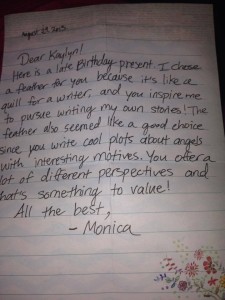 August 29, 2013
Dear Kaylyn!
Here is a late Birthday present. I chose
a feather for you because it's like a
quill for a writer, and you inspire me
to pursue writing my own stories! The
feather also seemed like a good choice
since you write cool plots about angels
with interesting motives. You offer a
lot of different perspectives and
that's something to value!
All the best,
- Monica